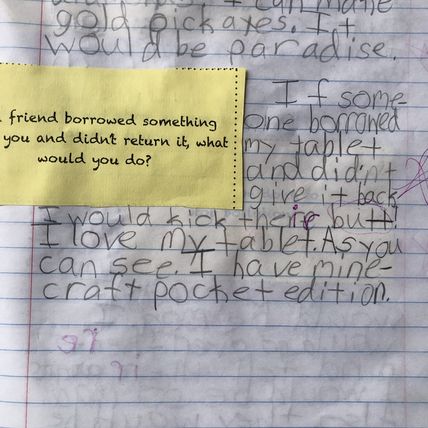 I can make
gold pickaxes. It
would be paradise.
friend borrowed something
you and didn't return it, what
would you do?
If some-
one borrowed
my tablet
and didn't
give it back
I would kick their butt!
I love my tablet. As you
can see. I have mine-
craft pocket edition.